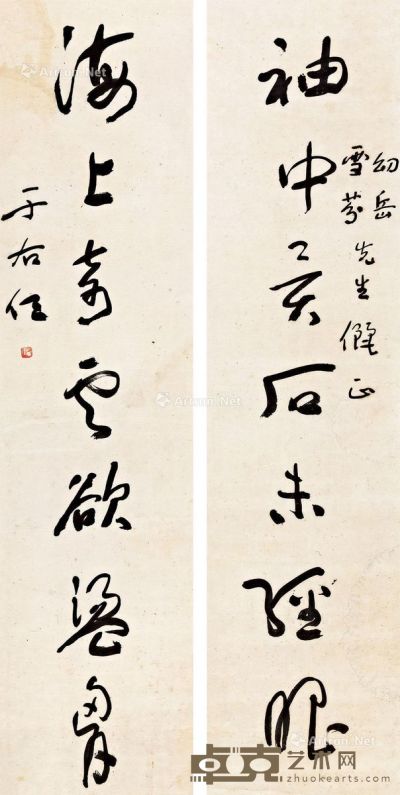 袖中異石未經眼
幼岳
雪芬先生儷正
海上奇雲欲盪胷
于右任
Artron.Net
Artron.Net
Artron.Net
Artron.Net
卓克艺术网
zhuokearts.com